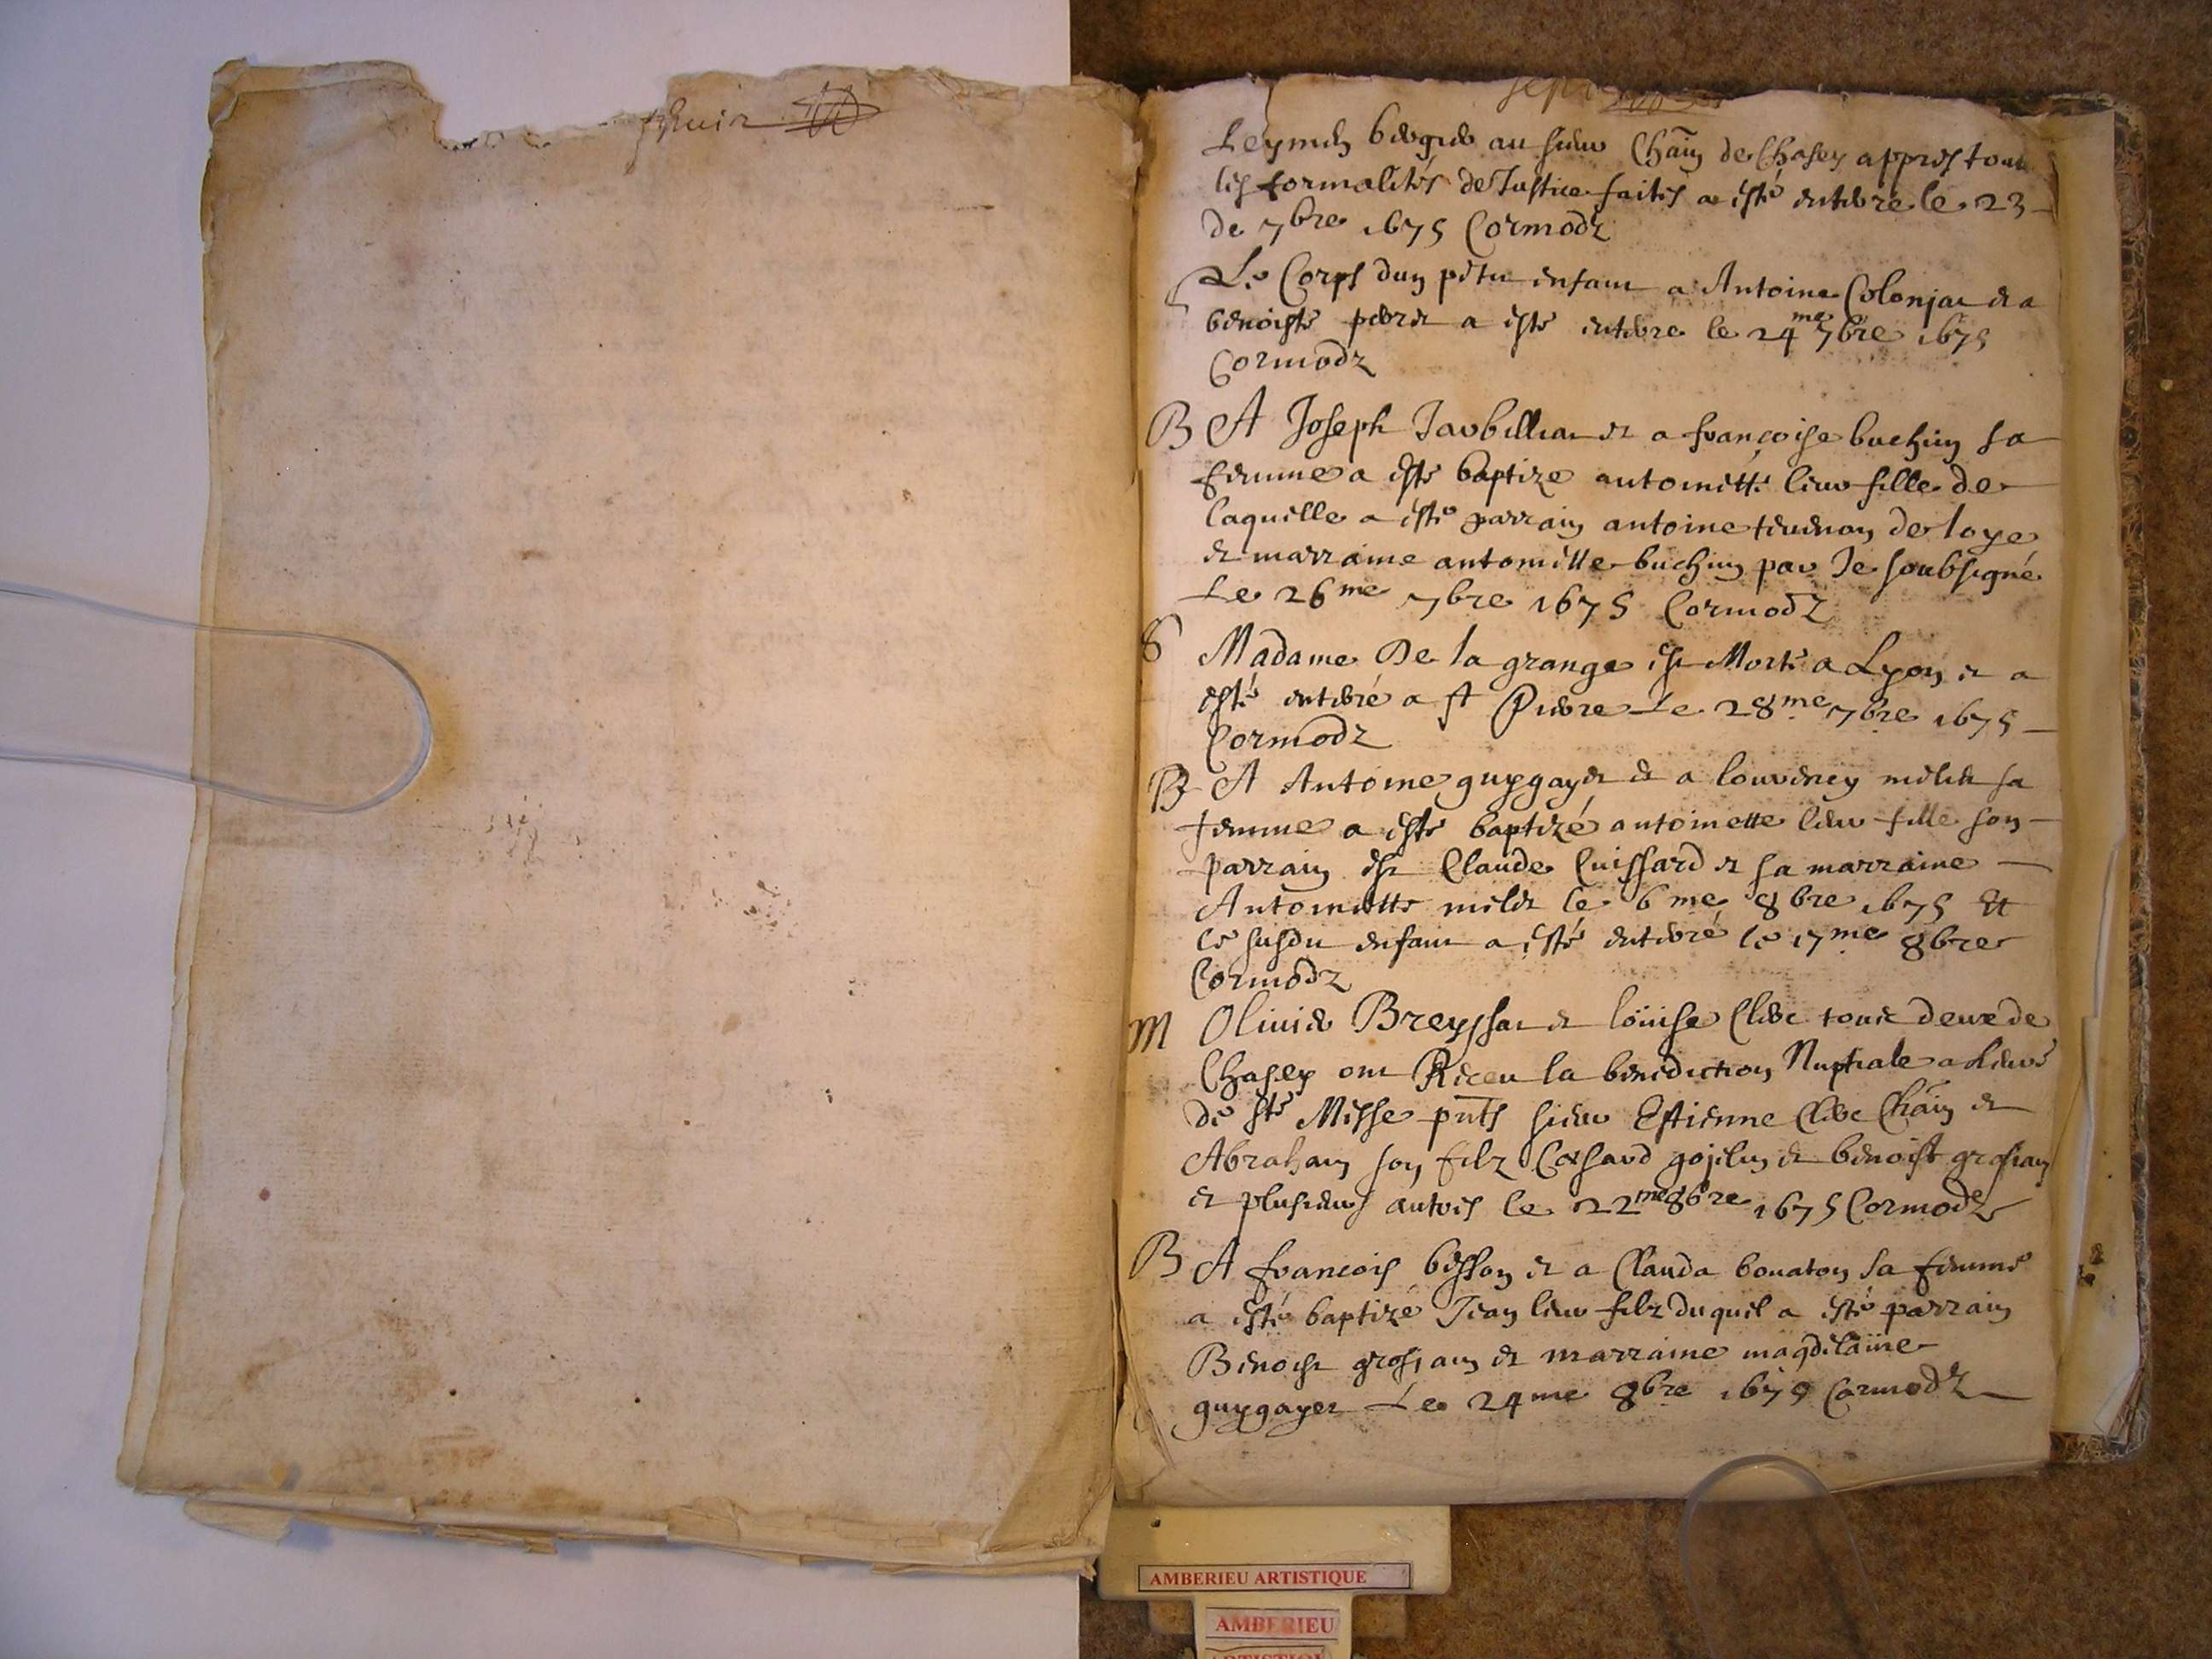 Leymen bergier au sieur Chain de Chasey appres tout
les formalités de Justice faites a esté enterré le 23
de 7bre 1675 Cormodz
S Le Corps dun petit enfant a Antoine Colonjat et a
benoiste perret a esté enterre le 24me 7bre 1675
Cormodz
B A Joseph Jarbilliat et a francoise buchin sa
femme a esté baptize antoinette leur fille de
laquelle a esté parrain antoine tevenon de loye
et marraine antoinette buchin par Je soubsigné
Le 26me 7bre 1675 Cormodz
S Madame De la grange est Morte a Lyon et a
esté enterré a st Pierre Le 28me 7bre 1675
Cormodz
B A Antoine guygayet et a milet sa
femme a esté baptizé antoinette leur fille son
parrain est Claude Cuissard et sa marraine
Antoinette milet le 6me 8bre 1675 Et
le susdit enfant a esté enterré le 17me 8bre
Cormodz
M Olivier Breyssat et loüise Clerc tous deux de
Chasey ont Receu la benediction Nuptiale a
de ste Messe pnts sieur Estienne Clerc Chain et
Abraham son filz gojelin et benoist grosjan
et plusieurs autres le 22me 8bre 1675 Cormodz
B A francois besson et a Clauda bonaton sa femme
a esté baptizé Jean leur filz duquel a esté parrain
Benoist grosjan et marraine magdelaine
guygayet Le 24me 8bre 1675 Cormodz
AMBERIEU ARTISTIQUE
AMBERIEU
ARTISTIQUE